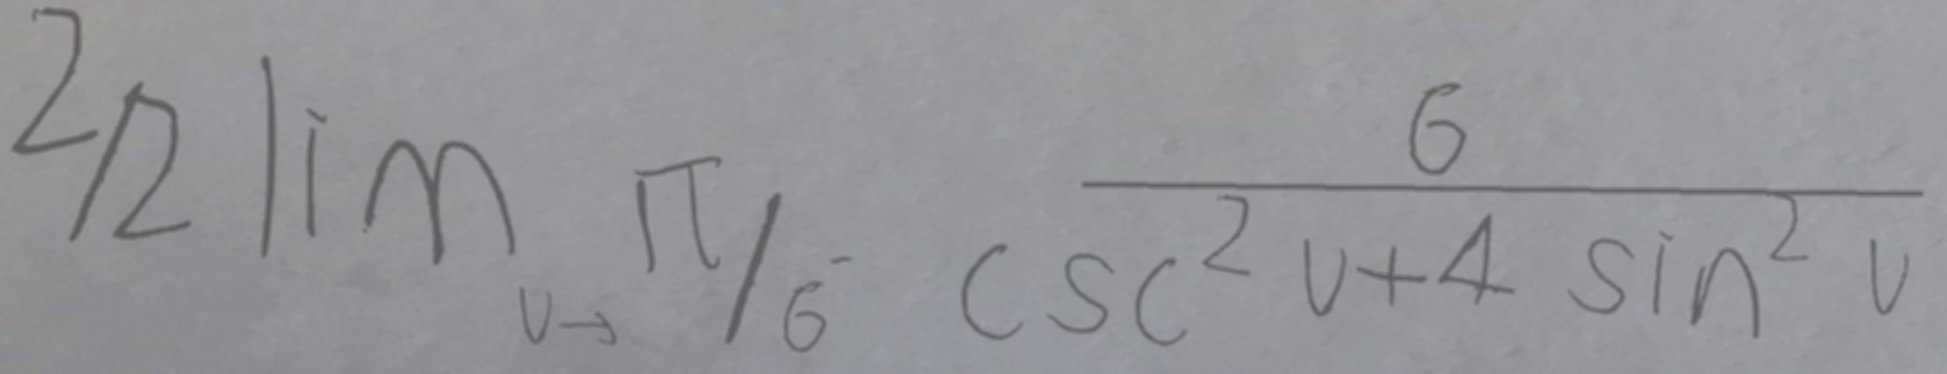 2/2 lim_{v→π/6⁻} \frac{6}{csc² v+4 sin² v}